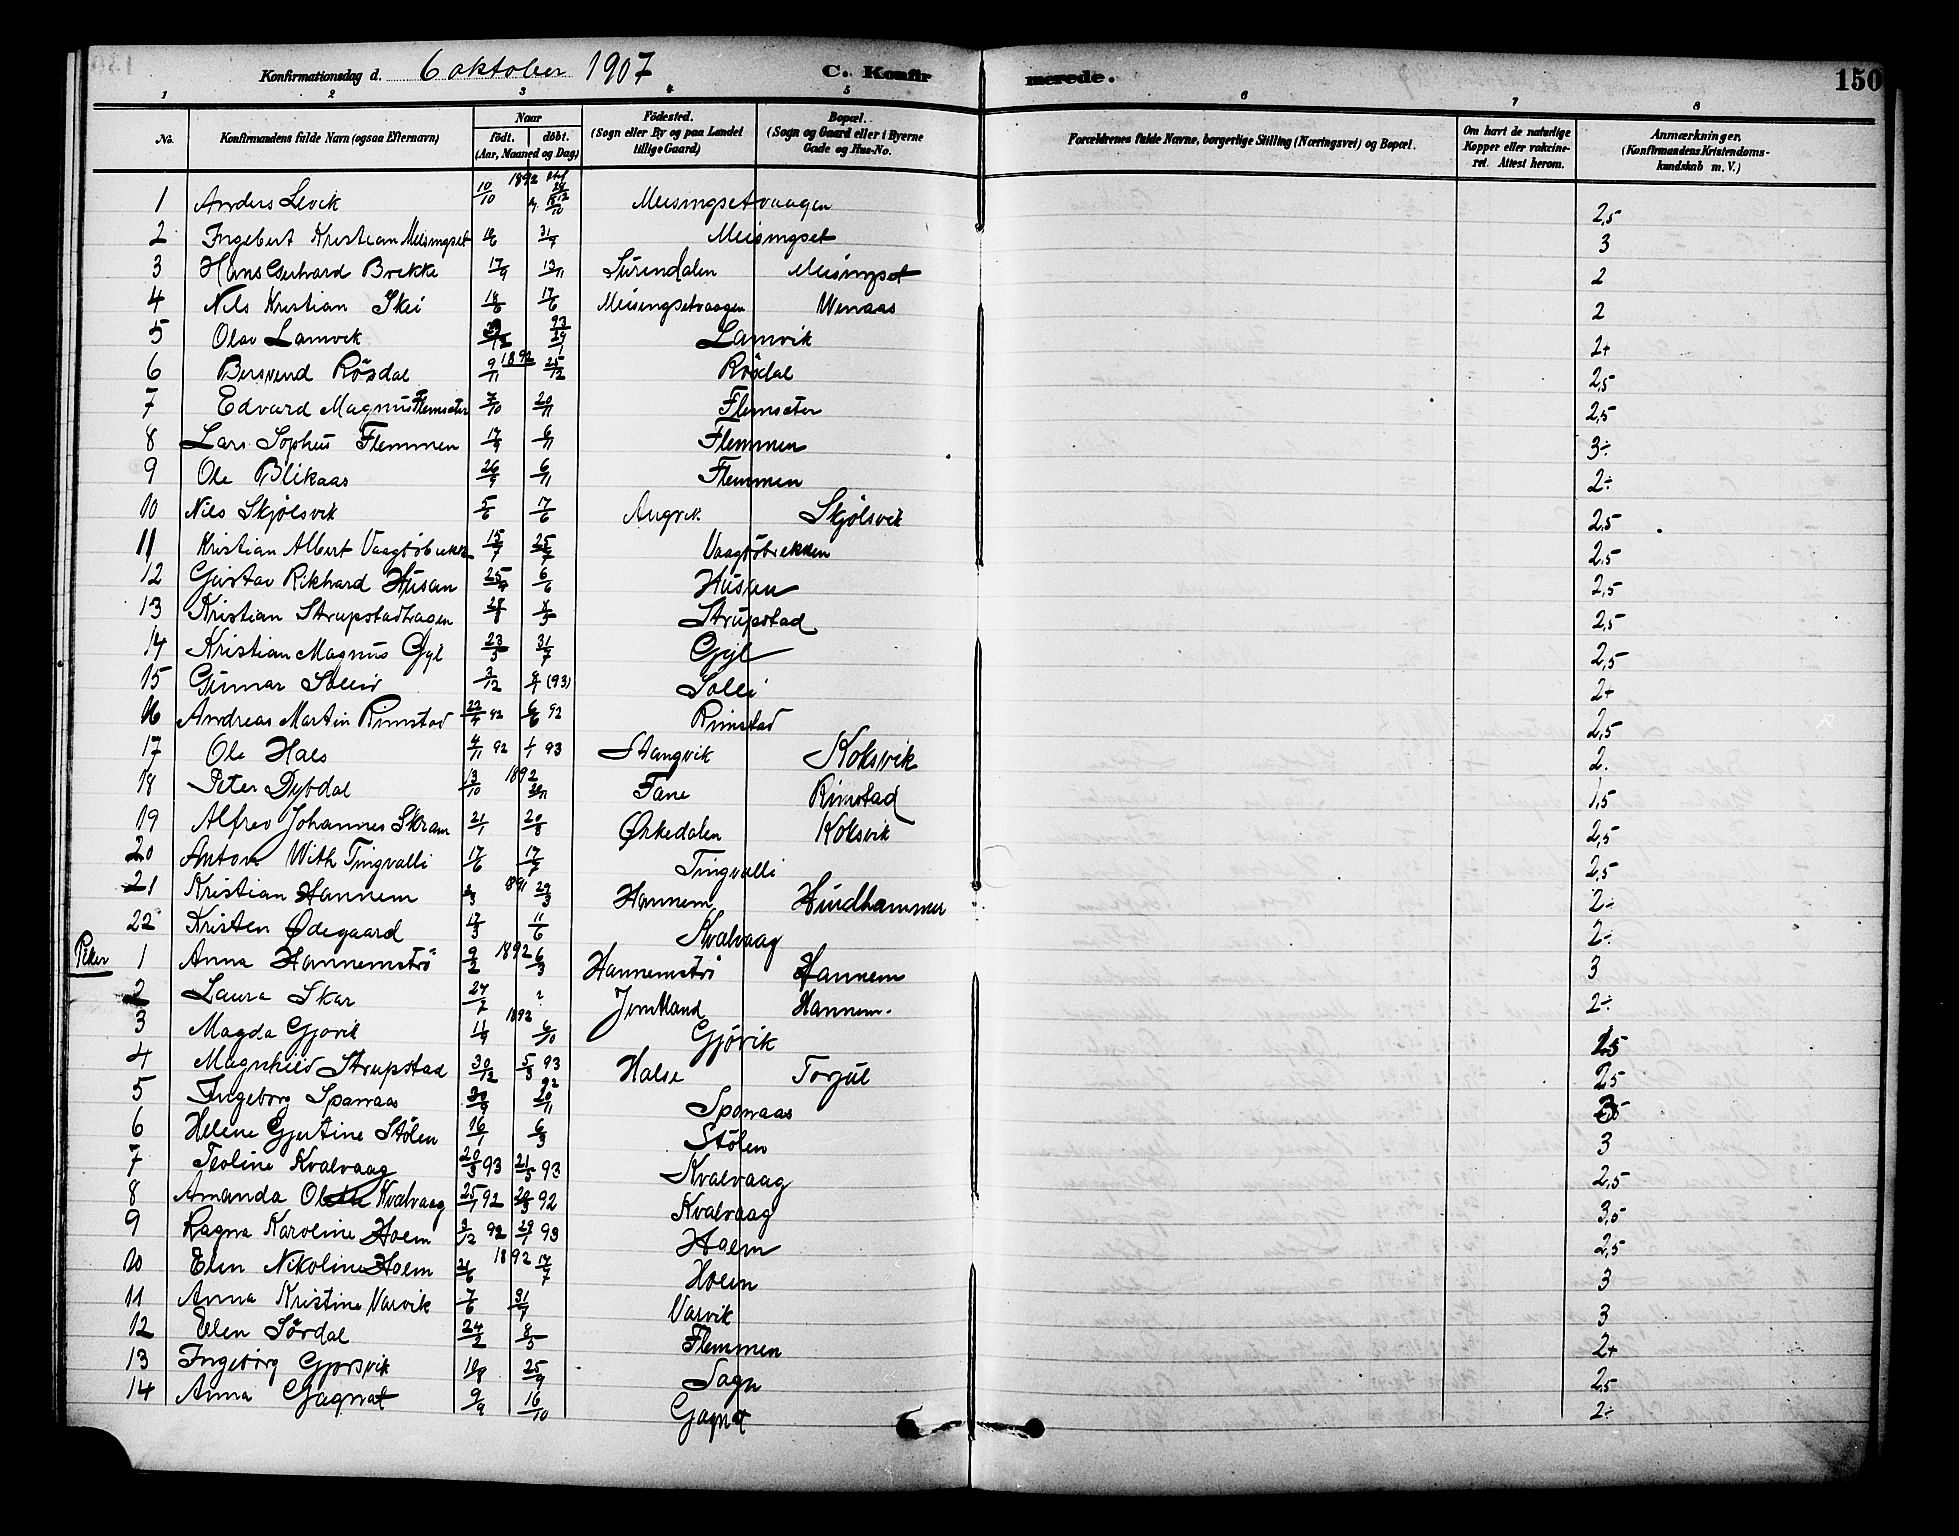 Konfirmationsdag d. 6 oktober 1907 C. Konfir merede. 150
1 2 3 4 5 6 7 8
No. Konfirmandens fulde Navn (ogsaa Efternavn) Naar født. døbt. (Aar, Maaned og Dag) Fødested. (Sogn eller By og paa Landet tillige Gaard) Bopæl. (Sogn og Gaard eller i Byerne Gade og Hus-No. Forældrenes fulde Navne, borgerlige Stilling (Næringsvei) og Bopæl. Om havt de naturlige Kopper eller vaccineret. Attest herom. Anmærkninger. (Konfirmandens Kristendomskundskab m. V.)
1 Anders Levik 10/10 1892 Meisingsetvaagen 2,5
2 Ingebert Kristian Meisingset 31/7 Meisingset 3
3 Hans Gerhard Brekke 17/9 13/11 Surendalen Meisingset 2
4 Nils Kristian Skei 18/6 17/6 Meisingsetvaagen Wenaas 2
5 Olav Lamvik 93 Lamvik 2+
6 Bersvend Rösdal 9/11 1892 25/12 Rösdal 2,5
7 Edvard Magnus Flemsæter 7/10 20/11 Flemsæter 2,5
8 Lars Sophus Flemmen 17/9 6/11 Flemmen 3÷
9 Ole Blikaas 26/9 6/11 Flemmen 2÷
10 Nils Skjølsvik 5/6 17/6 Angvik Skjølsvik 2,5
11 Kristian Albert Vaagböbekken 15/7 25/7 Vaagböbekken 2,5
12 Gustav Rikhard Husan 25/4 6/6 Husan 2,5
13 Kristian Strupstadhagen Strupstad 2,5
14 Kristian Magnus Gyl 23/5 31/7 Gyl 2,5
15 Gunnar Sollid 2/12 (93) Solli 2+
16 Andreas Martin Rimstad 22/4 92 6/6 92 Rimstad 2,5
17 Ole Hals 4/11 92 1/1 93 Stangvik Koksvik 2.
18 Peter Dybdal 13/10 1892 Fane Rimstad 1,5
19 Alfred Johannes Skram 21/1 20/8 Ørkedalen Koksvik 2,5
20 Anton With Tingvalli 17/6 17/7 Tingvalli 2,5
21 Kristian Hannem 1891 29/3 Hannem Hindhammer 2÷
22 Kristen Ødegaard 17/3 11/6 Kvalvaag 2÷
Piker 1 Anna Hannemströ 9/2 1892 6/3 Hannemströ Hannem 3
2 Laura Skar 24/7 ? Jemtland Hannem. 2÷
3 Magda Gjövik 11/9 1892 6/10 Gjövik 2,5
4 Magnhild Strupstad 30/12 5/3 93 Halse Torjul 2,5
5 Ingeborg Spanaas 30/9 92 20/11 Spanaas
6 Helene Gjertine Stölen 16/1 6/3 Stölen 3
7 Teoline Kvalvaag 20/3 93 21/5 93 Kvalvaag 2,5
8 Amanda Kvalvaag 25/1 92 92 Kvalvaag 3,5
9 Ragna Karoline Holm 3/12 92 29/1 93 Holm 2,5
10 Elen Nikoline Holm 21/6 1892 17/7 Holm 3
11 Anna Kristine Varvik 7/6 31/7 Varvik 3
12 Ellen Sördal 24/2 8/5 Flemmen 2+
13 Ingeborg Gjørsvik 25/9 Sagn 2,5
14 Anna Gagnat 9/9 16/10 Gagnat 2÷